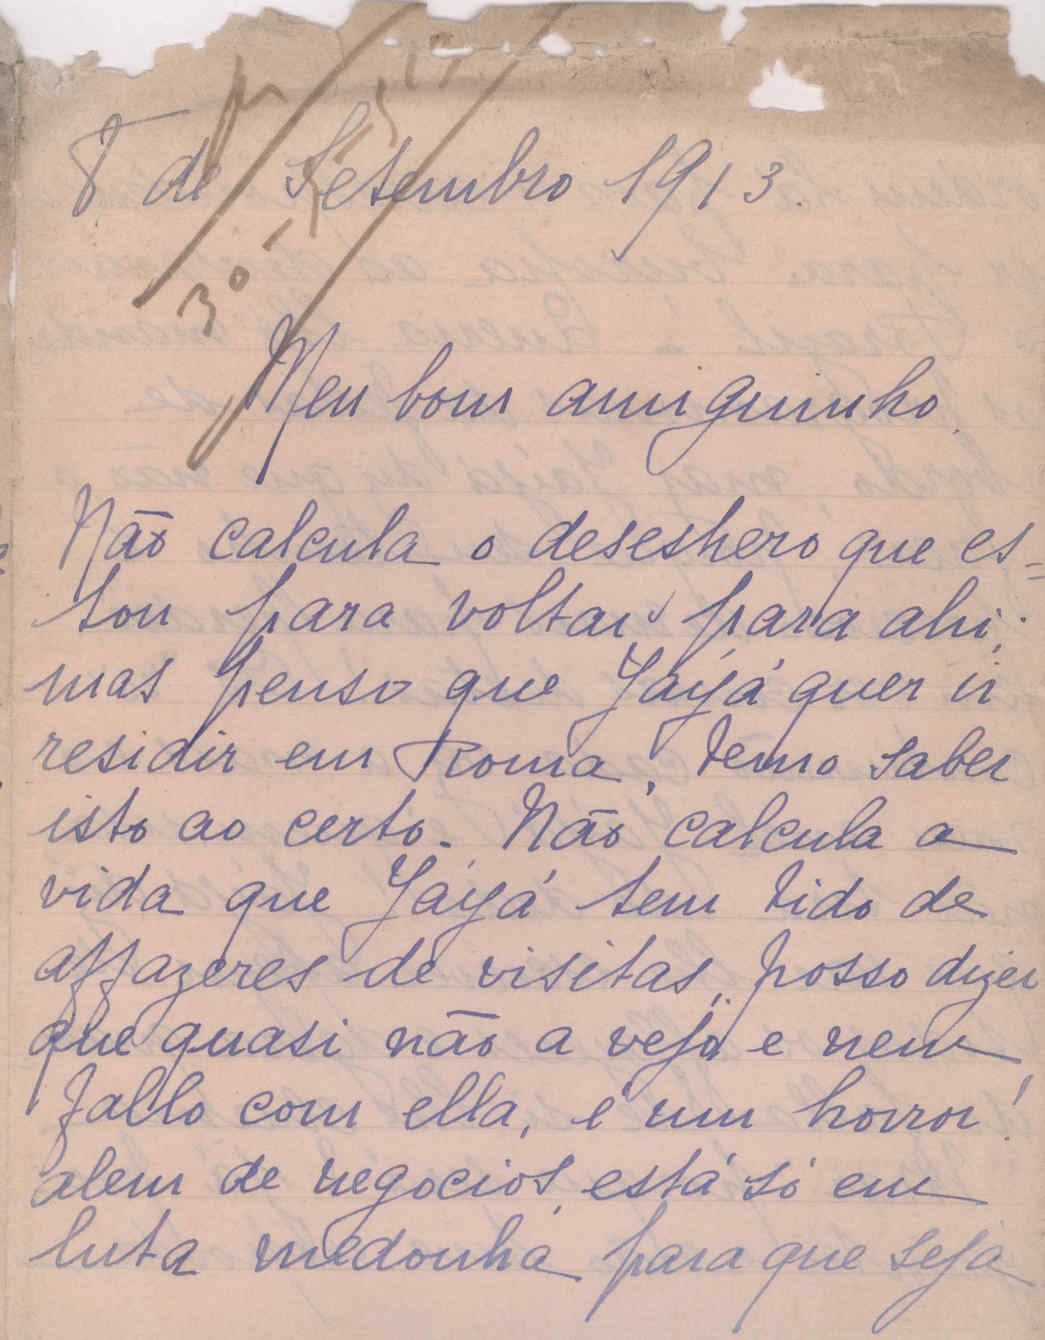 8 de Setembro 1913.
Meu bom amiguinho.
Não calcula o desespero que es=
tou para voltar para ahi,
mas penso que Yáyá quer ir
residir em Roma, temo saber
isto ao certo. Não calcula a
vida que Yáyá tem tido de
affazeres de visitas, posso dizer
que quasi não a vejo e nem
fallo com ella, é um horror!
alem de negocios, está só em
luta medonha para que seja